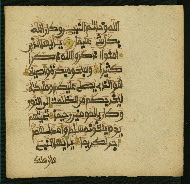 الله وخاتم النبيين وكان الله
بكل شيء عليما يايها الذين
امنوا اذكروا الله ذكرا
كثيرا وسبحوه بكرة واصيلا
هو الذي يصلي عليكم وملئكته
ليخرجكم من الظلمت الى النور
وكان بالمومنين رحيما تحيتهم
يوم يلقونه سلم واعد لهم
اجرا كريما يايها النبي